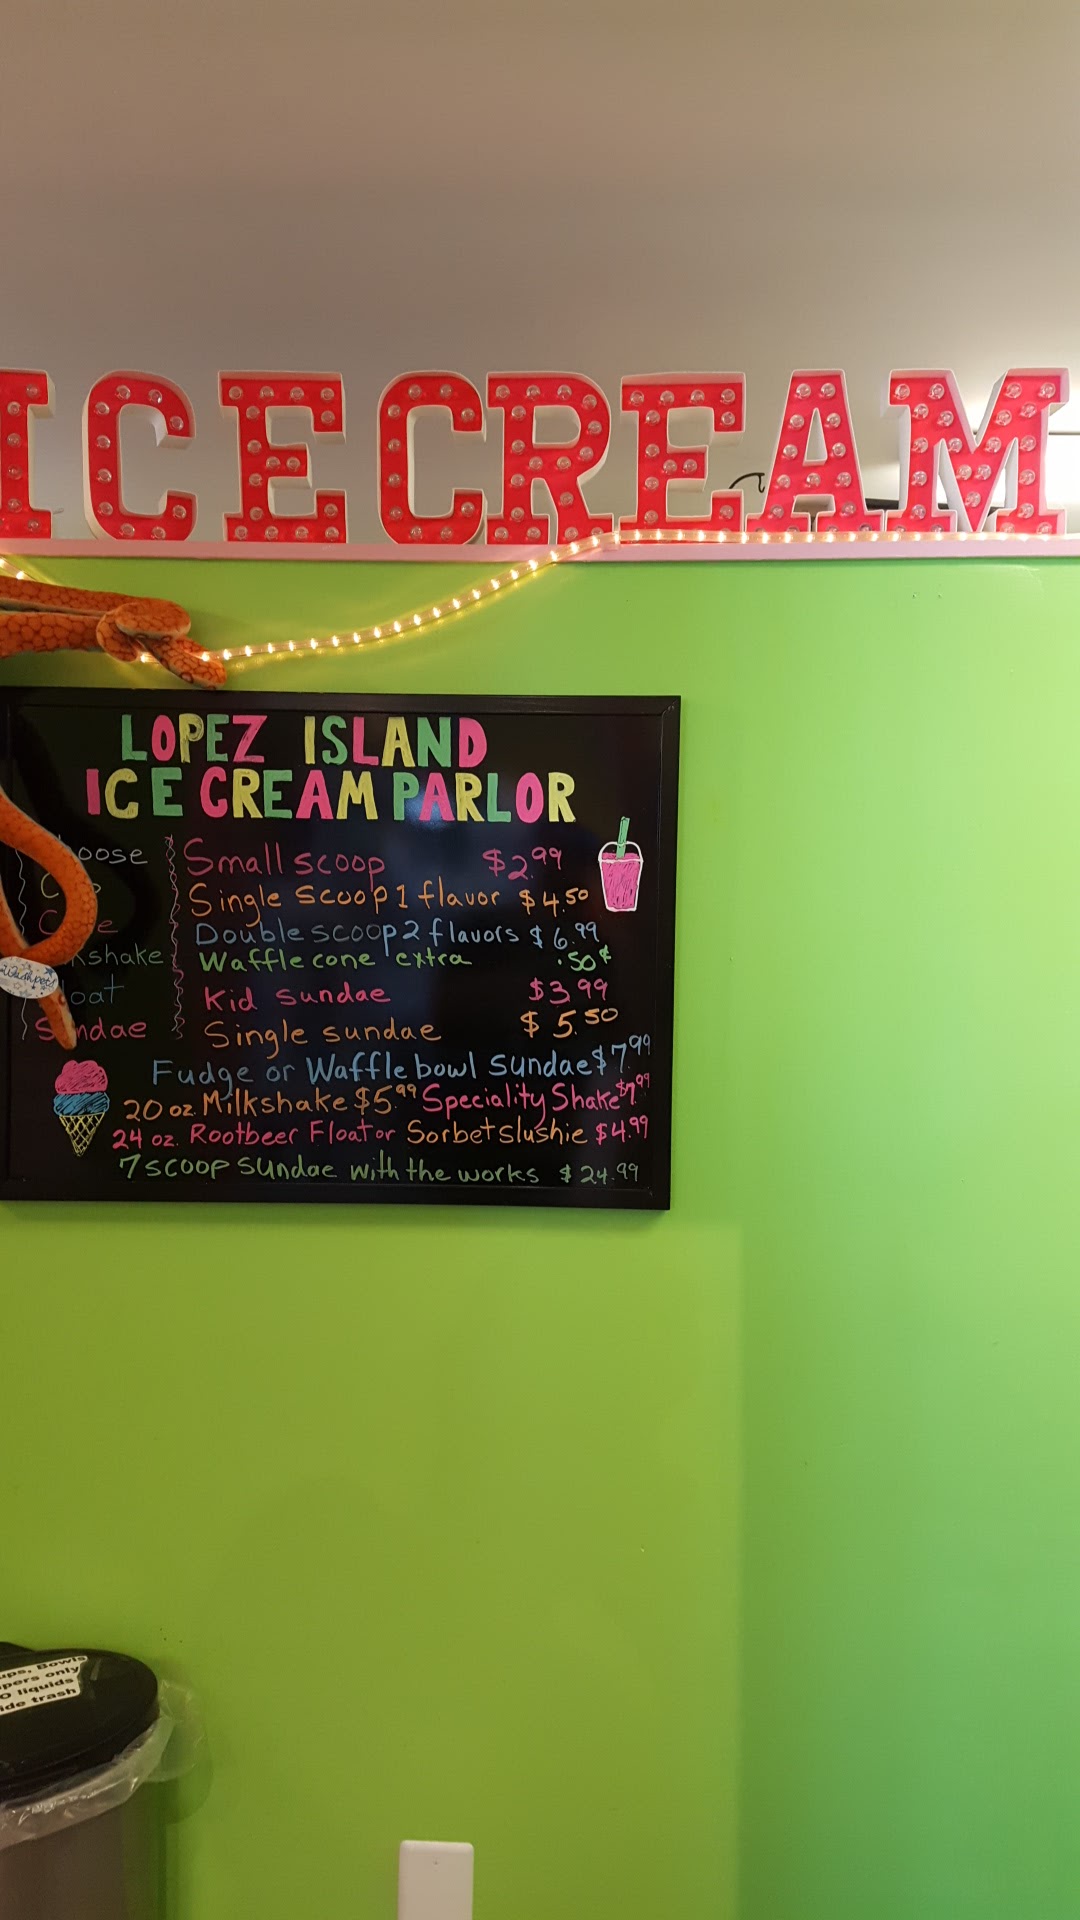 ICE CREAM
LOPEZ ISLAND
ICE CREAM PARLOR
Small scoop $2.99
Single scoop 1 flavor $4.50
Double scoop 2 flavors $6.99
Waffle cone extra .50¢
Kid sundae $3.99
Sundae
Single sundae $5.50
Fudge or Waffle bowl sundae $7.99
20 oz. Milkshake $5.99 Speciality Shake $7.99
24 oz. Rootbeer Float or Sorbet slushie $4.99
7 scoop sundae with the works $24.99
Bowls
only
liquids
trash